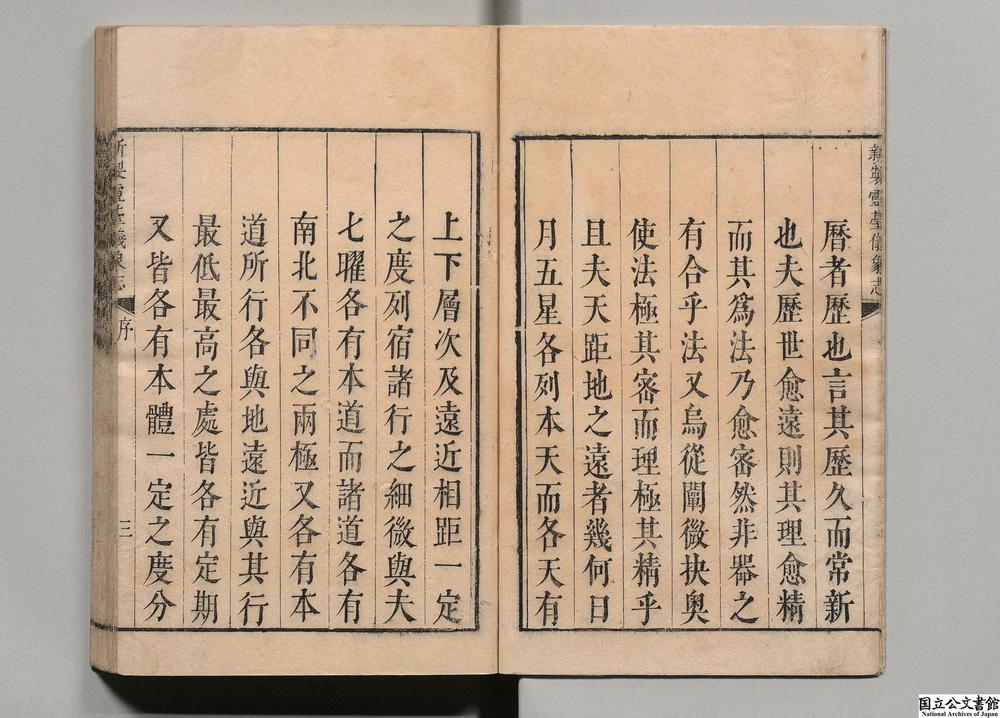 新製靈臺儀象志
曆者歷也言其歷久而常新
也夫歷世愈遠則其理愈精
而其爲法乃愈密然非器之
有合乎法又烏從闡微抉奥
使法極其密而理極其精乎
且夫天距地之遠者幾何日
月五星各列本天而各天有
上下層次及遠近相距一定
之度列宿諸行之細微與大
七曜各有本道而諸道各有
南北不同之兩極又各有本
道所行各與地遠近與其行
最低最高之處皆各有定期
又皆各有本體一定之度分
新製靈臺儀象志
序
三
国立公文書館
National Archives of Japan